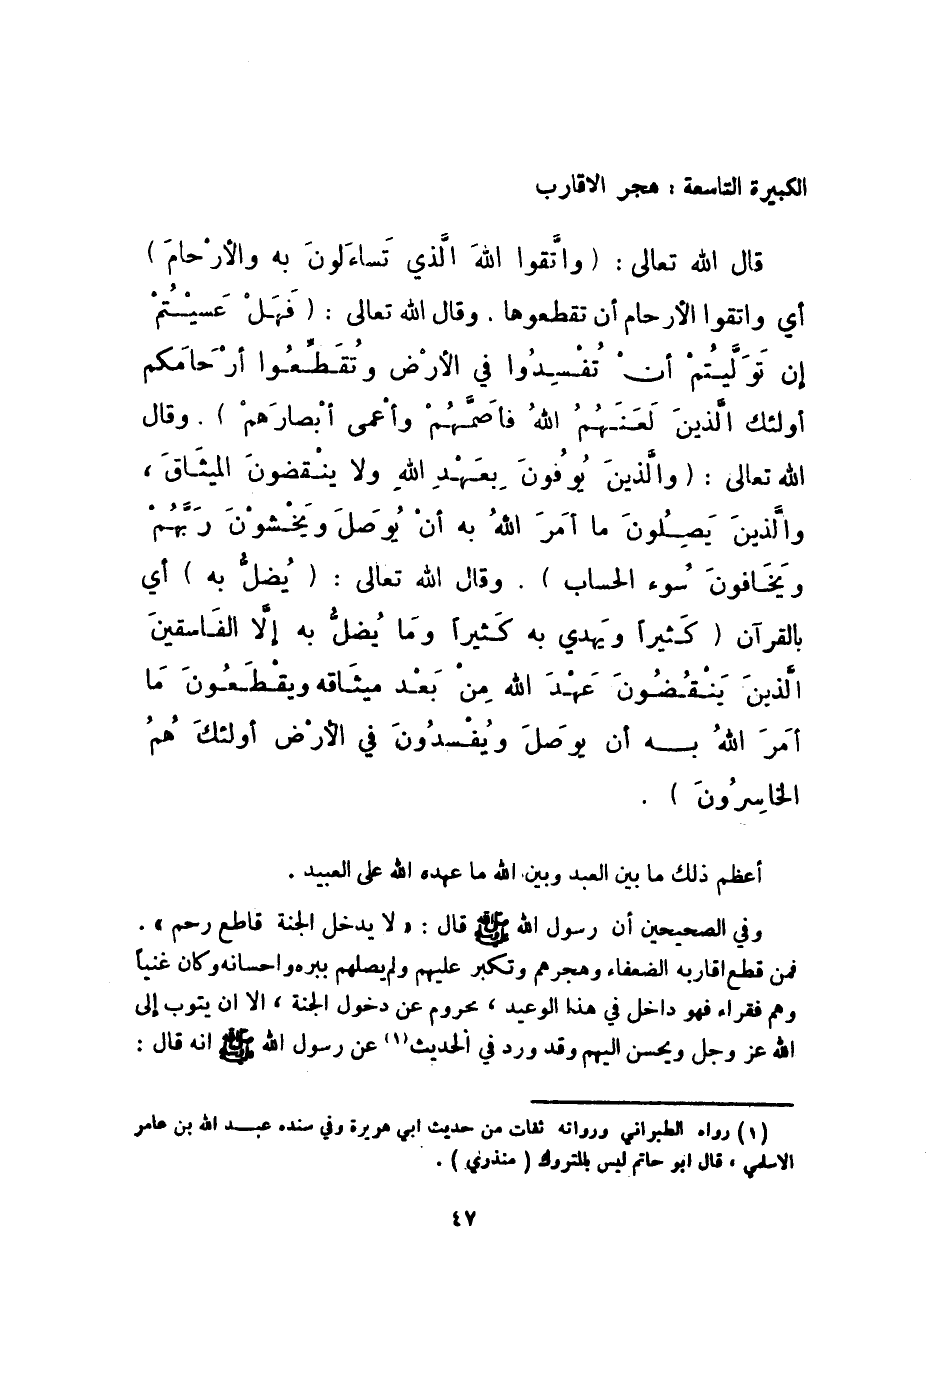 الكبيرة التاسعة : هجر الاقارب
قال الله تعالى : ( واتَّقوا اللهَ الَّذي تَساءَلونَ به والأرْحامَ )
أي واتقوا الأرحام أن تقطعوها . وقال الله تعالى : ( فَهَلْ عَسيْتُمْ
إن تَوَلَّيتُمْ أنْ تُفْسِدُوا في الأرْض وتُقَطِّعُوا أرْحَامَكم
أولئك الَّذينَ لَعَنَهُمُ اللهُ فأصَمَّهُمْ وأعْمى أبْصارَهمْ ) . وقال
الله تعالى : ( والَّذينَ يُوفُونَ بِعَهْدِ اللهِ ولا ينْقضونَ الميثَاقَ ،
والَّذينَ يَصِلُونَ ما أمَرَ اللهُ به أنْ يُوصَلَ ويَخْشوْنَ رَبَّهُمْ
ويَخَافونَ سُوء الحساب ) . وقال الله تعالى : ( يُضلُّ به ) أي
بالقرآن ( كَثيراً ويَهدي به كَثيراً ومَا يُضلُّ به إلَّا الفَاسقينَ
الَّذينَ يَنْقُضُونَ عَهْدَ الله مِنْ بَعْد ميثَاقه ويقْطَعُونَ مَا
أمَرَ اللهُ بــه أن يوصَلَ ويُفْسدُونَ في الأرْض أولئكَ هُمُ
الخَاسِرُونَ ) .
أعظم ذلك ما بين العبد وبين الله ما عهده الله على العبيد .
وفي الصحيحين أن رسول الله ﷺ قال : « لا يدخل الجنة قاطع رحم » .
فمن قطع اقاربه الضعفاء وهجرهم وتكبر عليهم ولم يصلهم ببره واحسانه وكان غنياً
وهم فقراء فهو داخل في هذا الوعيد ، محروم عن دخول الجنة ، الا ان يتوب إلى
الله عز وجل ويحسن اليهم وقد ورد في الحديث(١) عن رسول الله ﷺ انه قال :
(١) رواه الطبراني ورواته ثقات من حديث ابي هريرة وفي سنده عبــد الله بن عامر
الاسلمي ، قال ابو حاتم ليس بالمتروك ( منذري ) .
٤٧